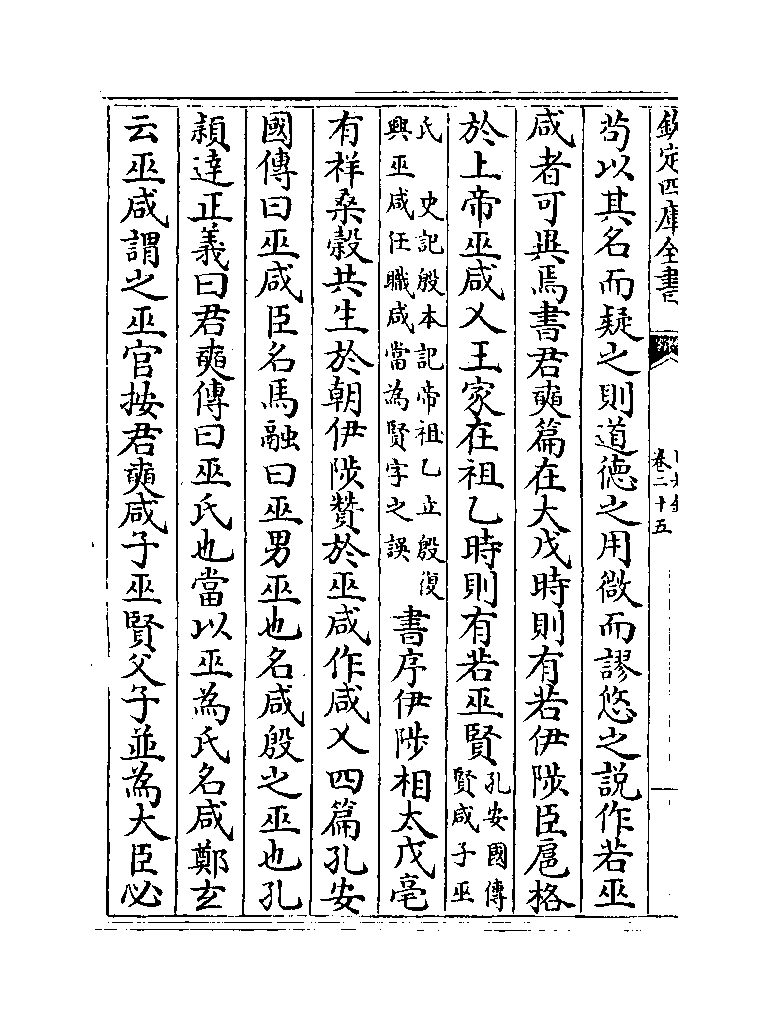 欽定四庫全書
卷二十五
苟以其名而疑之則道德之用微而謬悠之説作若巫
咸者可異焉書君奭篇在大戊時則有若伊陟臣扈格
於上帝巫咸乂王家在祖乙時則有若巫賢孔安國傳賢咸子巫
氏　史記殷本記帝祖乙立殷復興巫咸任職咸當為賢字之誤書序伊陟相太戊亳
有祥桑榖共生於朝伊陟贊於巫咸作咸乂四篇孔安
國傳曰巫咸臣名馬融曰巫男巫也名咸殷之巫也孔
頴達正義曰君奭傳曰巫氏也當以巫為氏名咸鄭玄
云巫咸謂之巫官按君奭咸子巫賢父子並為大臣必